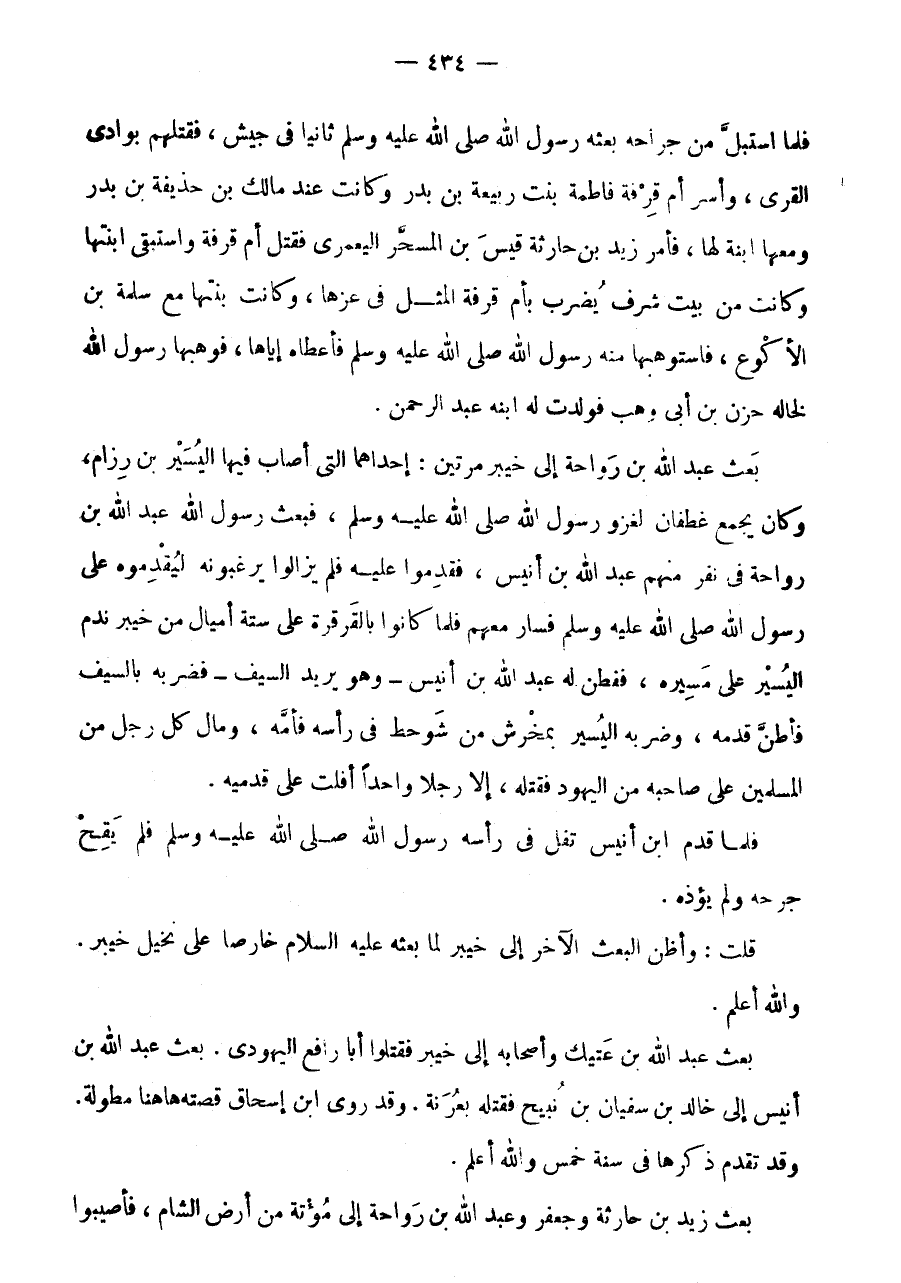 — ٤٣٤ —
فلما استبلَّ من جراحه بعثه رسول الله صلى الله عليه وسلم ثانيا فى جيش ، فقتلهم بوادى
القرى ، وأسر أم قِرْفة فاطمة بنت ربيعة بن بدر وكانت عند مالك بن حذيفة بن بدر
ومعها ابنة لها ، فأمر زيد بن حارثة قيسَ بن المسحَّر اليعمرى فقتل أم قرفة واستبقى ابنتها
وكانت من بيت شرف يُضرب بأم قرفة المثـــل فى عزها ، وكانت بنتها مع سلمة بن
الأكْوع ، فاستوهبها منه رسول الله صلى الله عليه وسلم فأعطاه إياها ، فوهبها رسول الله
لخاله حزن بن أبى وهب فولدت له ابنه عبد الرحمن .
بَعث عبد الله بن رَواحة إلى خيبر مرتين : إحداهما التى أصاب فيها اليُسَيْر بن رِزام،
وكان يجمع غطفان لغزو رسول الله صلى الله عليـه وسلم ، فبعث رسول الله عبد الله بن
رواحة فى نفر منهم عبد الله بن أنيس ، فقدِموا عليـه فلم يزالوا يرغبونه ليُقْدِموه على
رسول الله صلى الله عليه وسلم فسار معهم فلما كانوا بالقَرقرة على ستة أميال من خيبر ندم
اليُسيْر على مَسِيره ، ففطن له عبد الله بن أنيس ــ وهو يريد السيف ــ فضربه بالسيف
فأطنَّ قدمه ، وضربه اليُسير بمخْرش من شَوحط فى رأسه فأمَّه ، ومال كل رجل من
المسلمين على صاحبه من اليهود فقتله ، إلا رجلا واحداً أفلت على قدميه .
فلمـا قدم ابن أنيس تفل فى رأسه رسول الله صـلى الله عليـه وسلم فلم يَقِحْ
جرحه ولم يؤذه .
قلت : وأظن البعث الآخر إلى خيبر لما بعثه عليه السلام خارصا على نخيل خيبر .
والله أعلم .
بعث عبد الله بن عَتيك وأصحابه إلى خيبر فقتلوا أبا رافع اليهودى . بعث عبد الله بن
أنيس إلى خالد بن سفيان بن نُبيح فقتله بعُرَنة . وقد روى ابن إسحاق قصته هاهنا مطولة.
وقد تقدم ذكرها فى سنة خمس والله أعلم .
بعث زيد بن حارثة وجعفر وعبد الله بن رَواحة إلى مُؤْتة من أرض الشام ، فأصيبوا